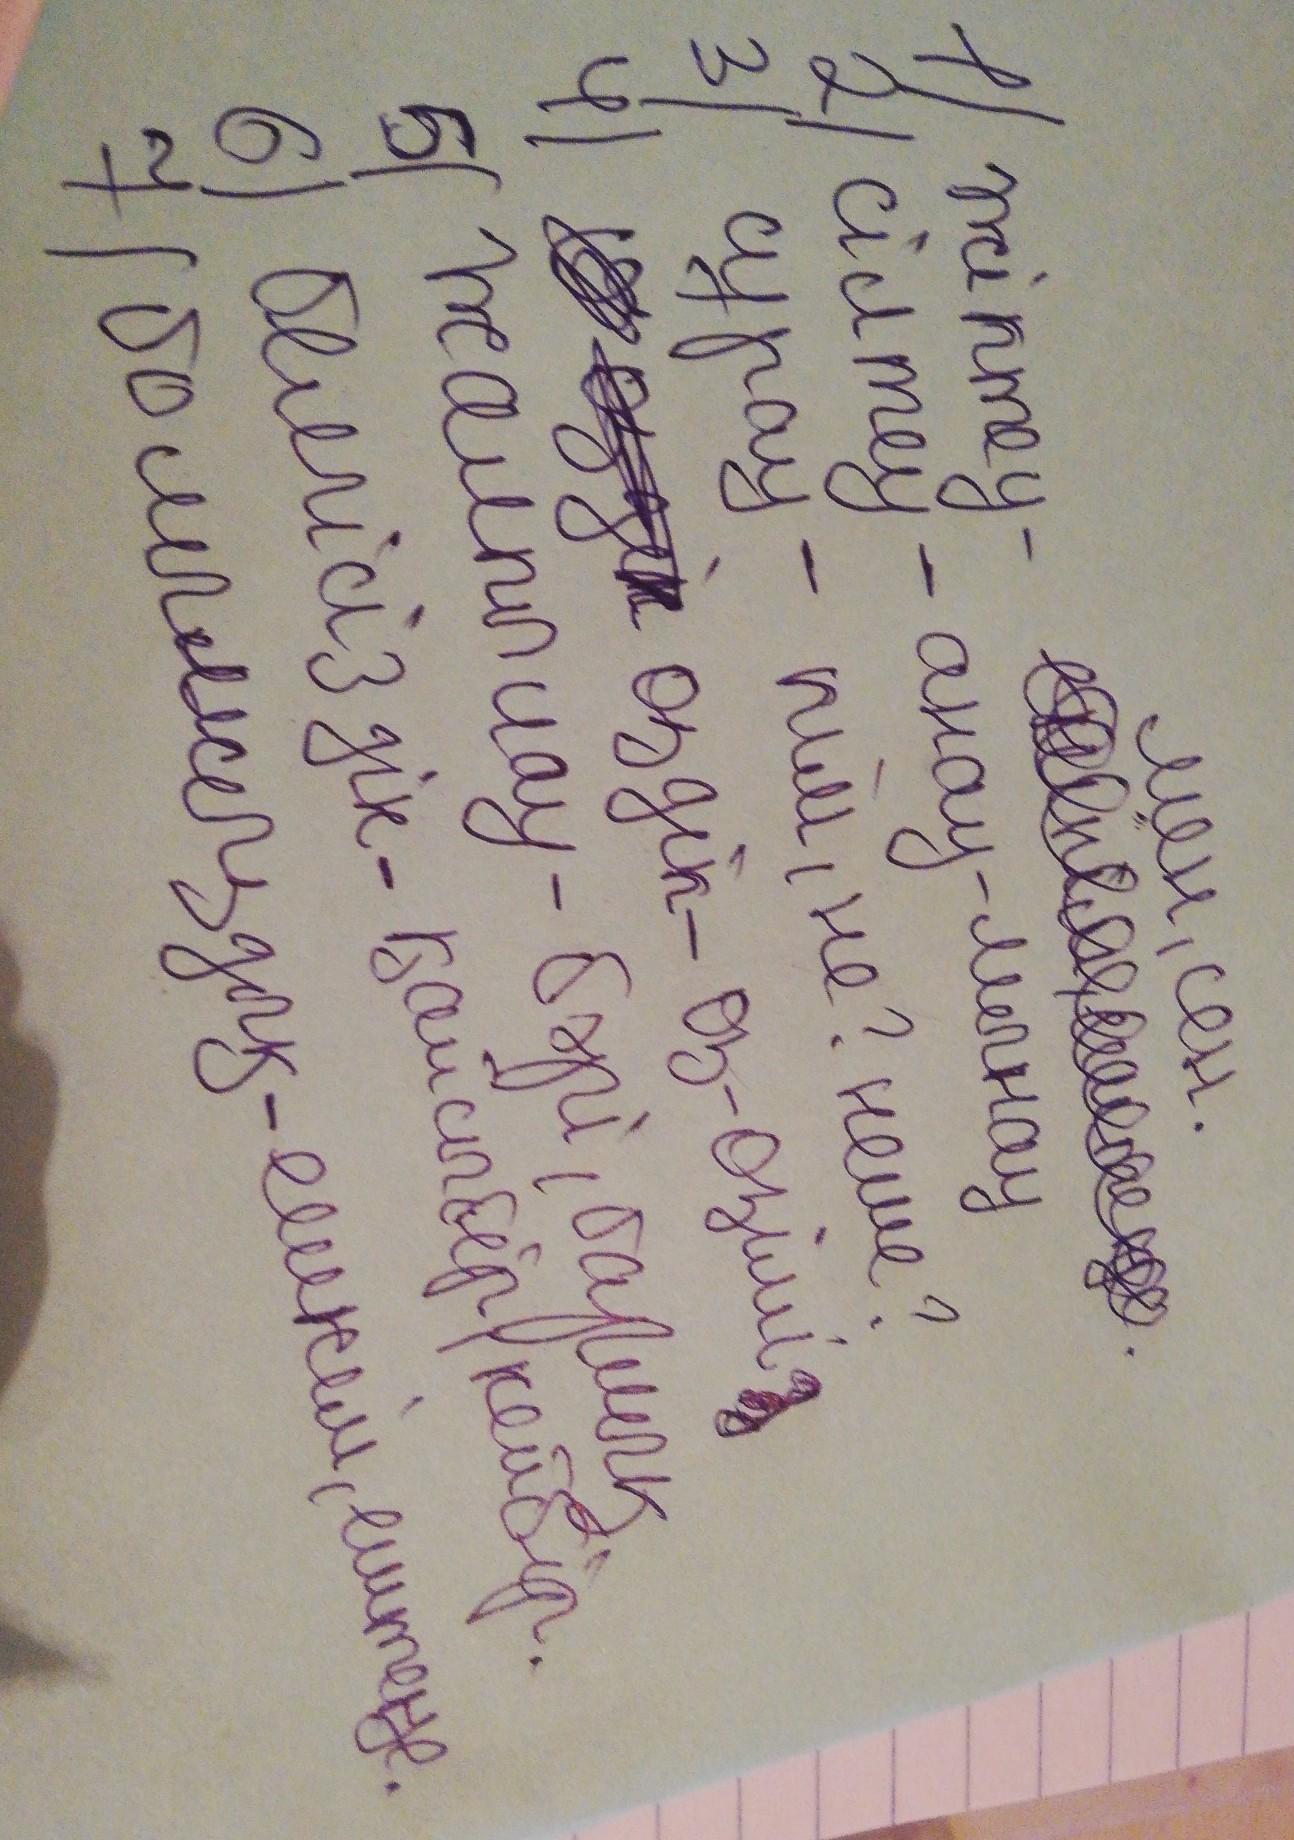 мен, сен.
1) жіктеу-
2) сілтеу - анау-мынау
3) сұрау - кім, не? неше?
4) өздік - өз-өзімі
5) жалпылау - бүрі, барлық
6) белгісіздік - қайсыбір, кейбір.
7) болымсыздық - ешкім, ештеңе.